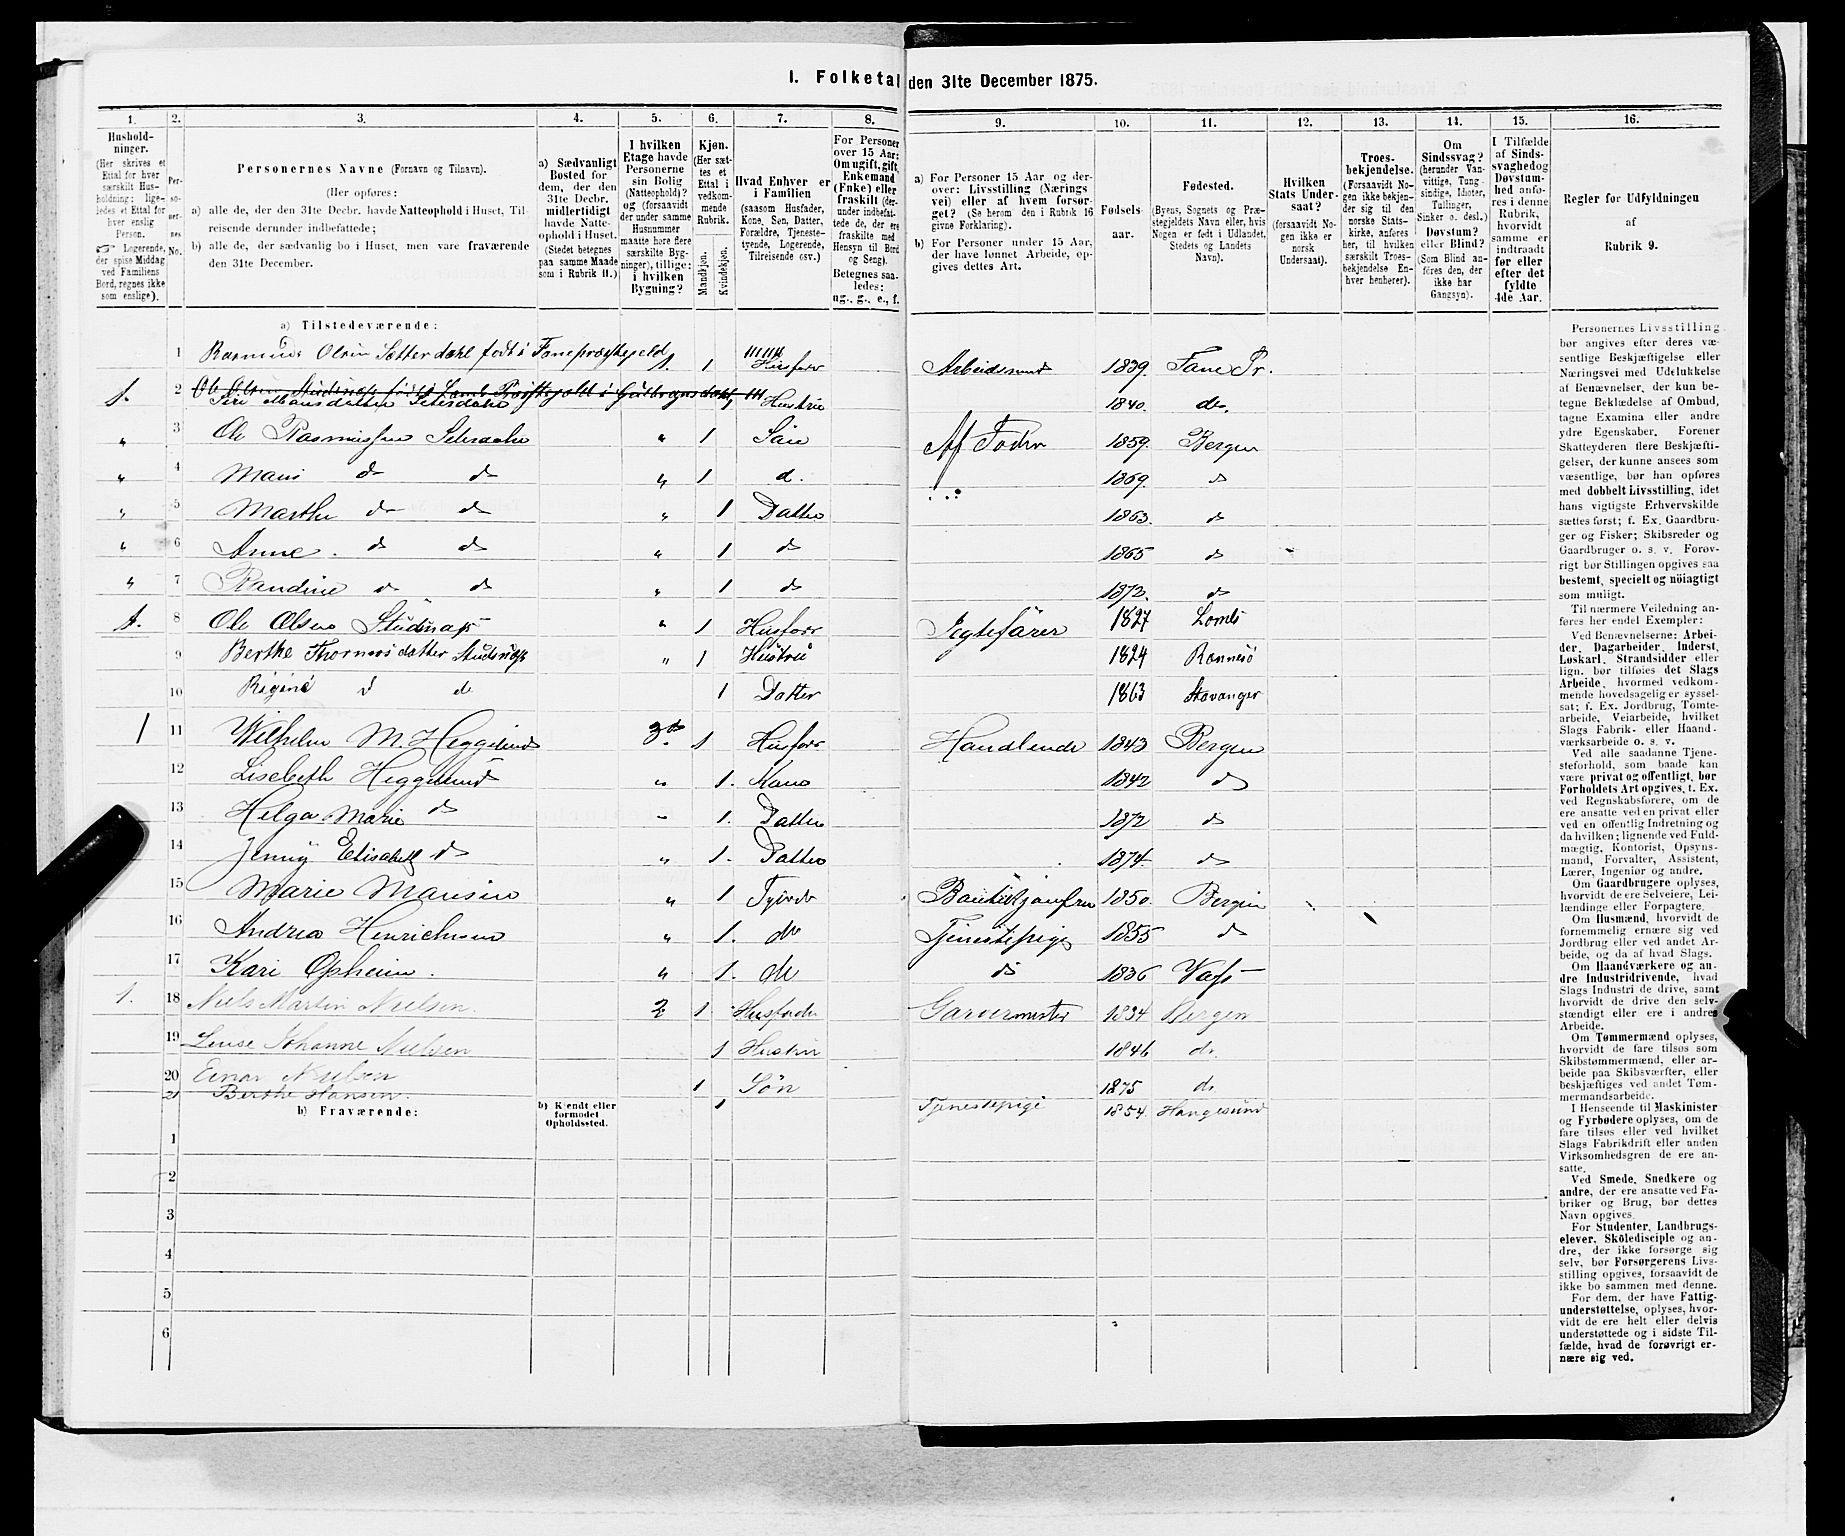 I. Folketal den 31te December 1875.
1. 2. 3. 4. 5. 6. 7. 8. 9. 10. 11. 12. 13. 14. 15. 16.
Hushold-
ninger.
(Her skrives et
Ettal for hver
særskilt Hus-
holdning; lige-
ledes et Ettal for
hver enslig
Person.
☞ Logerende,
der spise Middag
ved Familiens
Bord, regnes ikke
som enslige).
Per-
so-
ner-
nes
No.
Personernes Navne (Fornavn og Tilnavn).
(Her opføres:
a) alle de, der den 31te Decbr. havde Natteophold i Huset, Til-
reisende derunder indbefattede;
b) alle de, der sædvanlig bo i Huset, men vare fraværende
den 31te December.
a) Sædvanligt
Bosted for
dem, der den
31te Decbr.
midlertidigt
havde Natte-
ophold i Huset.
(Stedet betegnes
paa samme Maade
som i Rubrik 11.)
I hvilken
Etage havde
Personerne
sin Bolig
(Natteophold)?
og (forsaavidt
der under samme
Husnummer
maatte høre flere
særskilte Byg-
ninger), tillige:
i hvilken
Bygning?
Kjøn.
(Her sæt-
tes et
Ettal i
vedkom-
mende
Rubrik.
Mandkjøn.
Kvindekjøn.
Hvad Enhver er
i Familien
(saasom Husfader,
Kone, Søn, Datter,
Forældre, Tjeneste-
tyende, Logerende,
Tilreisende osv.)
For Personer
over 15 Aar:
Om ugift, gift,
Enkemand
(Enke) eller
fraskilt (der-
under indbefat-
tede de, der ere
fraskilte med
Hensyn til Bord
og Seng).
Betegnes saa-
ledes:
ug., g., e., f.
a) For Personer 15 Aar og der-
over: Livsstilling (Nærings
vei) eller af hvem forsør-
get? (Se herom den i Rubrik 16
givne Forklaring).
b) For Personer under 15 Aar,
der have lønnet Arbeide, op-
gives dettes Art.
Fødsels-
aar.
Fødested.
(Byens, Sognets og Præ-
stegjeldets Navn eller, hvis
Nogen er født i Udlandet,
Stedets og Landets
Navn).
Hvilken
Stats Under-
saat?
(forsaavidt No-
gen ikke er
norsk
Undersaat).
Troes-
bekjendelse.
(Forsaavidt No-
gen ikke bekjen-
der sig til den
norske Stats-
kirke, anføres
her, til hvilken
særskilt Troes-
bekjendelse En-
hver henhører).
Om
Sindssvag?
(herunder Van-
vittige, Tung-
sindige, Idioter,
Tullinger,
Sinker o. desl.)
Døvstum?
eller Blind?
(Som Blind an-
føres den, der
ikke har
Gangsyn).
I Tilfælde
af Sinds-
svaghed og
Døvstum-
hed anfø-
res i denne
Rubrik,
hvorvidt
samme er
indtraadt
før eller
efter det
fyldte
4de Aar.
Regler for Udfyldningen
af
Rubrik 9.
a) Tilstedeværende:
1 Rasmus Olsen Sætterdahl født i Fanepræstegjeld 1. 1 Husfader Arbeidsmand 1839. Fane Pr.
1. 2 Siri Mansdatter Setersdahl Hustrue 1840. do.
" 3 Ole Rasmussen Setersdahl " 1 Søn Af Fader 1859. Bergen
" 4 Mans do do " 1 d. 1869. do
" 5 Marthe do do " 1 Datter 1863. do
" 6 Anne. do do " 1 do 1865 do
" 7 Randine do do " 1 do 1872. do
1. 8 Ole Olsen " 1 Husfader Jegtefører 1827 Loms
9 Berthe " 1 Hustru 1824 Rennesö
10 Rigine d de 1 Datter 1863 Stavanger
1 11 Wilhelm M. Heggelund 1 Husfader Handlende 1843 Bergen
12 Lisebeth Heggelund " 1. Kone 1842 do
13 Helga Marie do " 1. Datter 1872 do
14 Jenny Elisabeth do " 1. Datter 1874. do
15 Marie Mansen " 1 Tyende 1850. Bergen
16 Andrea Henrichsen " 1. do Tjenestepige 1855 do
17 Kari Opheim. " 1. do do 1836 Voss
1. 18 Niels Martin Nielsen. 2 1 Husfader Garvermester 1834 Bergen
19 Lense Johanne Nielsen 1 Hustru 1846 do.
20 Einar Nielsen 1 Søn 1875 do.
21 Berthe Hansen. 1 Tjenestepige 1854. Haugesund
b) Fraværende:
b) Kjendt eller
formodet
Opholdssted.
1
2
3
4
5
6
Personernes Livsstilling
bør angives efter deres væ-
sentlige Beskjæftigelse eller
Næringsvei med Udelukkelse
af Benævnelser, der kun be-
tegne Beklædelse af Ombud,
tagne Examina eller andre
ydre Egenskaber. Forener
Skatteyderen flere Beskjæfti-
gelser, der kunne ansees som
væsentlige, bør han opføres
med dobbelt Livsstilling, idet
hans vigtigste Erhvervskilde
sættes først; f. Ex. Gaardbru-
ger og Fisker; Skibsreder og
Gaardbruger o. s. v. Forøv-
rigt bør Stillingen opgives saa
bestemt, specielt og nöiagtigt
som muligt.
Til nærmere Veiledning an-
føres her endel Exempler:
Ved Benævnelserne: Arbei-
der, Dagarbeider, Inderst,
Løskarl, Strandsidder eller
lign. bør tilføies det Slags
Arbeide, hvormed vedkom-
mende hovedsagelig er syssel-
sat; f. Ex. Jordbrug, Tomte-
arbeide, Veiarbeide, hvilket
Slags Fabrik- eller Haand-
værksarbeide o. s. v.
Ved alle saadanne Tjene-
steforhold, som baade kan
være privat og offentligt, bør
Forholdets Art opgives, t. Ex.
ved Regnskabsførere, om de
ere ansatte ved en privat eller
ved en offentlig Indretning og
da hvilken; lignende ved Fuld-
mægtig, Kontorist, Opsyns-
mand, Forvalter, Assistent,
Lærer, Ingeniør og andre.
Om Gaardbrugere oplyses,
hvorvidt de ere Selveiere, Lei-
lændinge eller Forpagtere.
Om Husmænd, hvorvidt de
fornemmelig ernære sig ved
Jordbrug eller ved andet Ar-
beide, og da af hvad Slags.
Om Haandværkere og an-
dre Industridrivende, hvad
Slags Industri de drive, samt
hvorvidt de drive den selv-
stændigt eller ere i andres
Arbeide.
Om Tømmermænd oplyses,
hvorvidt de fare tilsøs som
Skibstømmermænd, eller ar-
beide paa Skibsværfter, eller
beskjæftiges ved andet Tøm-
mermandsarbeide.
I Henseende til Maskinister
og Fyrbødere oplyses, om de
fare tilsøs eller ved hvilket
Slags Fabrikdrift eller anden
Virksomhedsgren de ere an-
satte.
Ved Smede, Snedkere og
andre, der ere ansatte ved Fa-
briker og Brug, bør dettes
Navn opgives.
For Studenter, Landbrugs-
elever, Skoledisciple og an-
dre, der ikke forsørge sig
selv, bør Forsørgerens Livs-
stilling opgives, forsaavidt de
ikke bo sammen med denne.
For dem, der have Fattig-
understøttelse, oplyses, hvor-
vidt de ere helt eller delvis
understøttede og i sidste Til-
fælde, hvad de forøvrigt er-
nære sig ved.